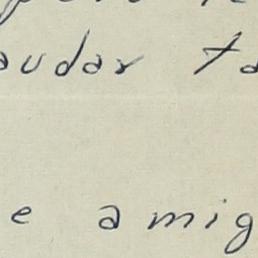 audar ta
e amig